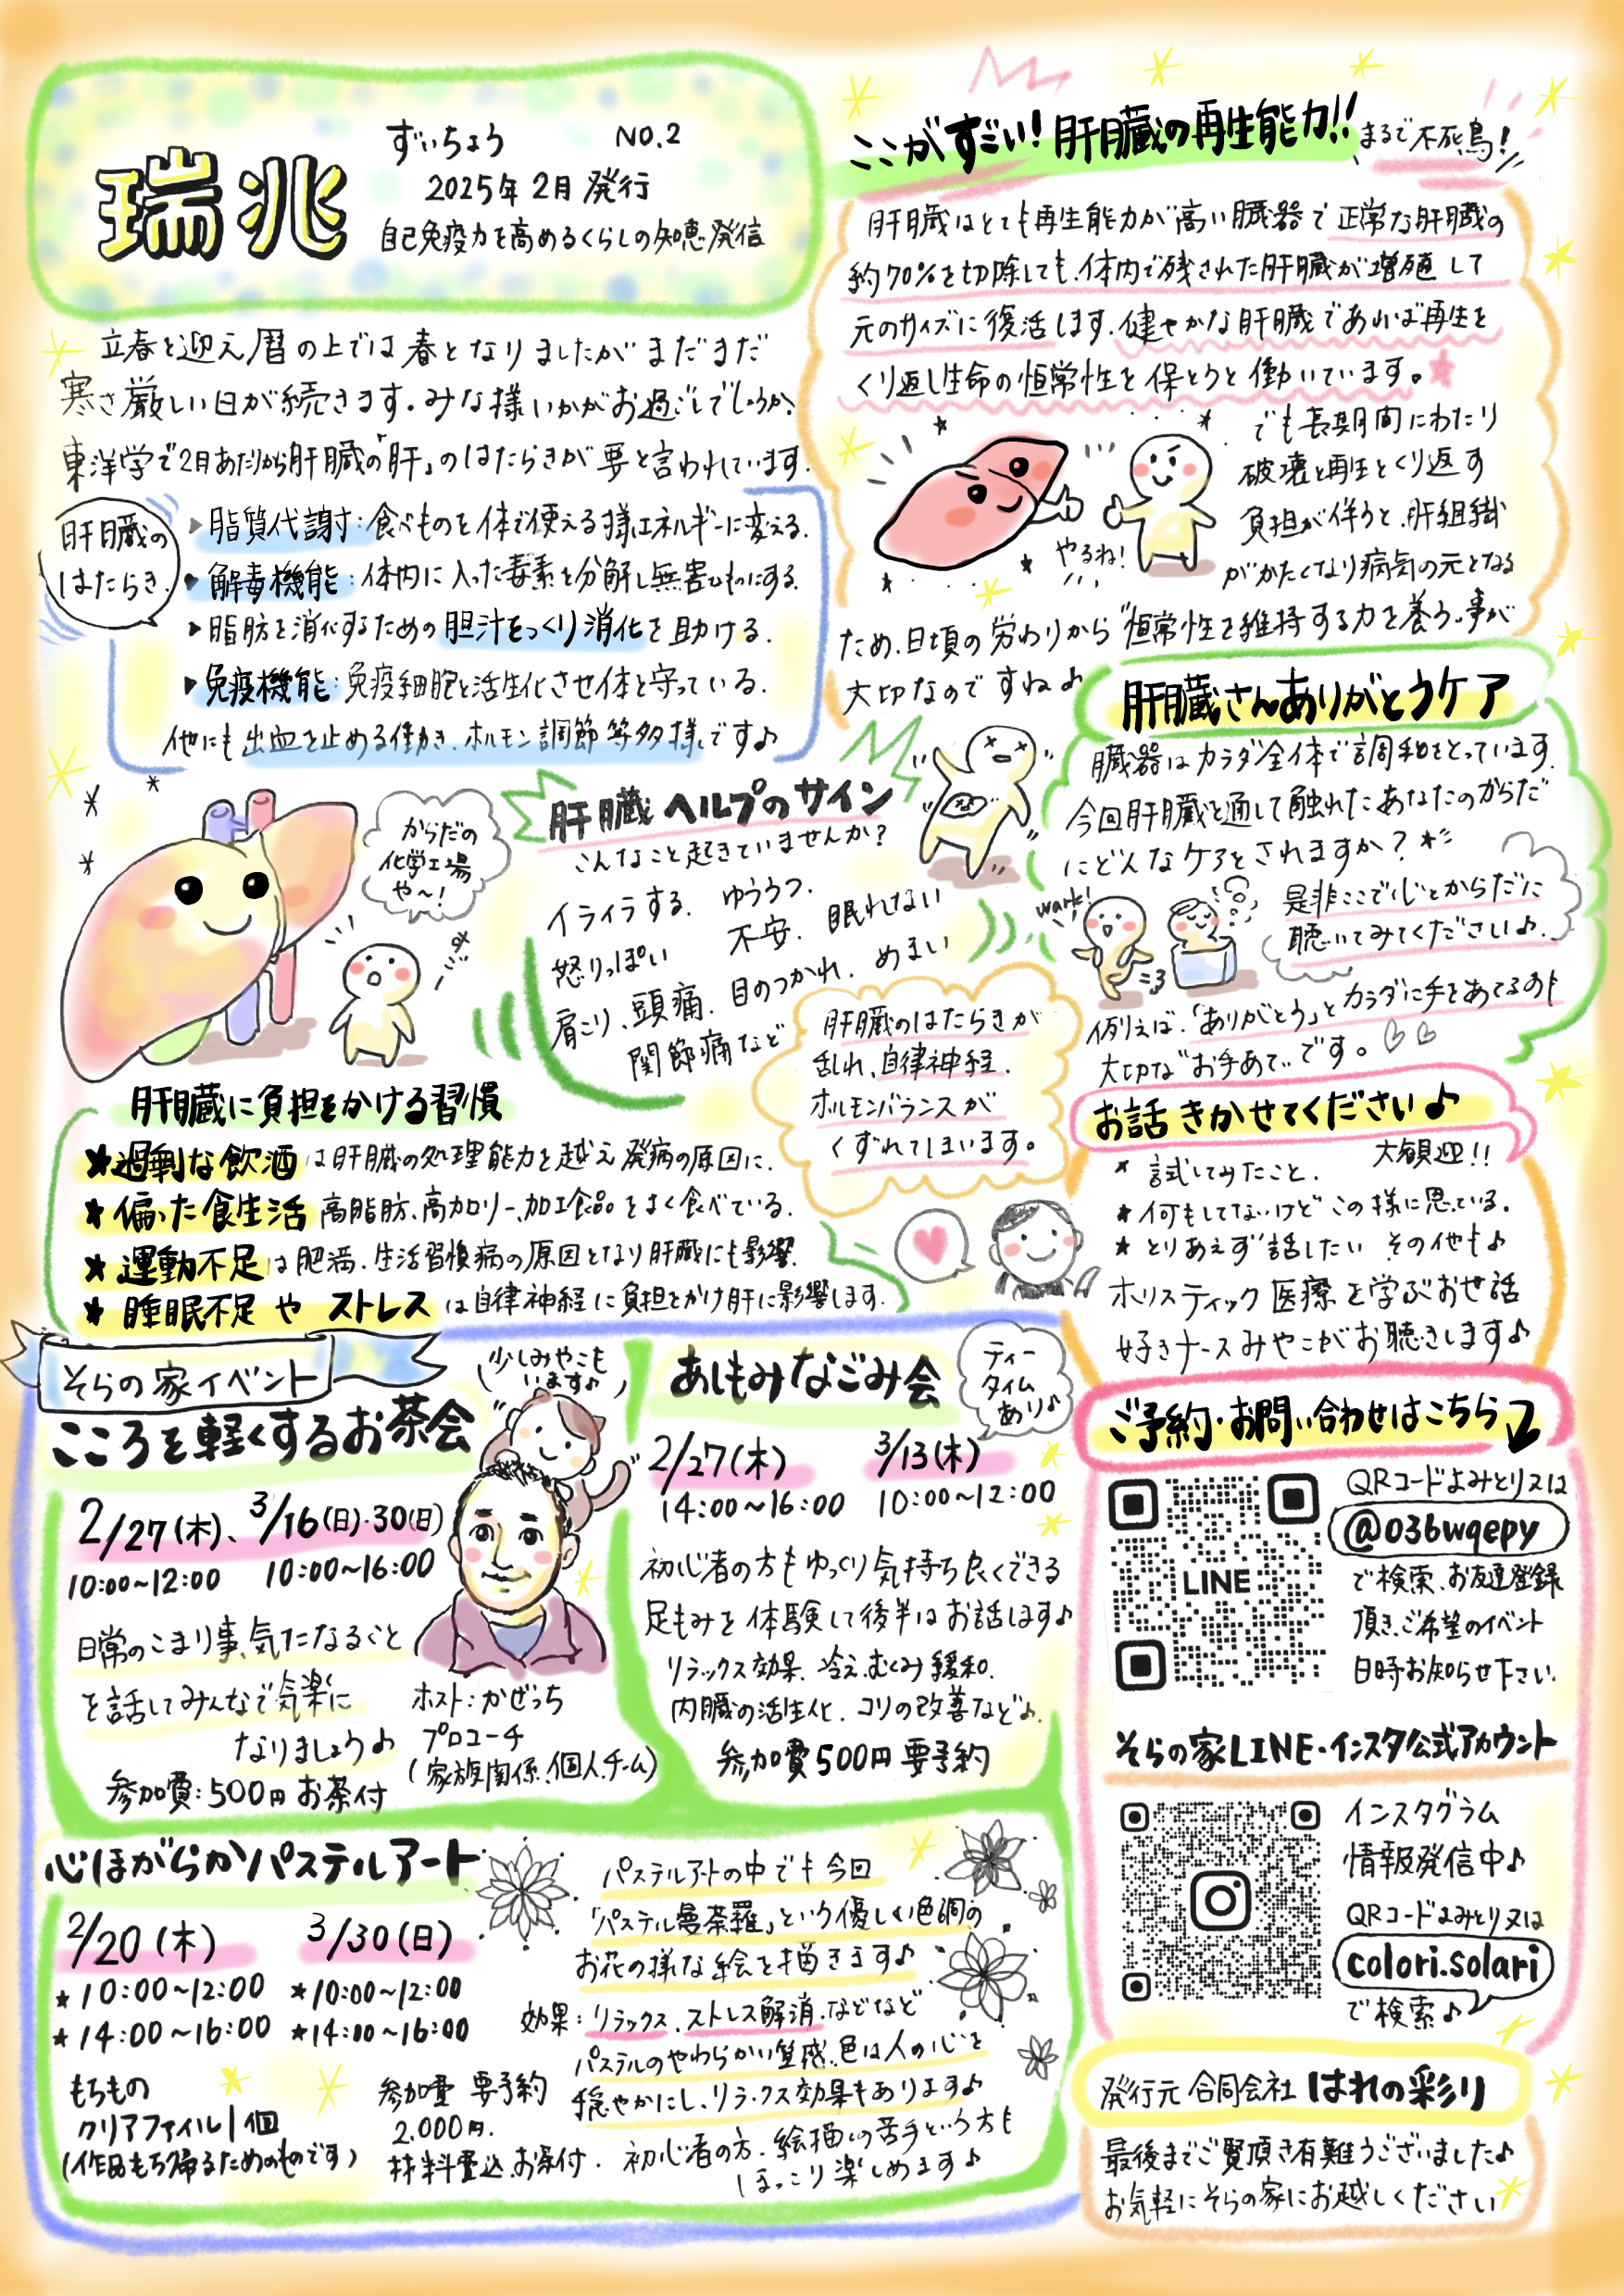 瑞兆
ずいちょう NO.2
2025年2月発行
自己免疫力を高めるくらしの知恵発信
立春を迎え暦の上では春となりましたがまだまだ
寒さ厳しい日が続きます。みな様いかがお過ごしでしょうか。
東洋学で2月あたりから肝臓の「肝」のはたらきが要と言われています。
肝臓の
はたらき
▶脂質代謝:食べものを体で使える様エネルギーに変える。
▶解毒機能:体内に入った毒素を分解し無害なものにする。
▶脂肪を消化するための胆汁をつくり消化を助ける。
▶免疫機能:免疫細胞を活性化させ体を守っている。
他にも出血を止める働き、ホルモン調節等多様です♪
からだの
化学工場
や〜!
ここがすごい!肝臓の再生能力!!まるで不死鳥!
肝臓はとても再生能力が高い臓器で正常な肝臓の
約70%を切除しても、体内で残された肝臓が増殖して
元のサイズに復活します。健やかな肝臓であれば再生を
くり返し生命の恒常性を保とうと働いています。
でも長期間にわたり
破壊と再生をくり返す
負担が伴うと、肝組織
がかたくなり病気の元となる
ため、日頃の労わりから"恒常性を維持する力を養う"事が
大切なのですね♪
やるね!
肝臓ヘルプのサイン
こんなこと起きていませんか?
イライラする、ゆううつ、
怒りっぽい 不安、眠れない
肩こり、頭痛、目のつかれ、めまい
関節痛など
肝臓のはたらきが
乱れ、自律神経、
ホルモンバランスが
くずれてしまいます。
肝臓さんありがとうケア
臓器はカラダ全体で調和をとっています。
今回肝臓を通して触れたあなたのからだ
にどんなケアをされますか?
是非ここで心とからだに
聴いてみてください♪
walk!
例えば、「ありがとう」とカラダに手をあてるのも
大切な"お手あて"です。
肝臓に負担をかける習慣
★過剰な飲酒は肝臓の処理能力を越え発病の原因に。
★偏った食生活 高脂肪、高カロリー、加工食品をよく食べている。
★運動不足は肥満、生活習慣病の原因となり肝臓にも影響。
★睡眠不足やストレスは自律神経に負担をかけ肝に影響します。
お話きかせてください♪
大歓迎!!
★試してみたこと、
★何もしてないけどこの様に思っている。
★とりあえず話したい その他も♪
ホリスティック医療を学ぶおせ話
好きナースみやこがお聴きします♪
そらの家イベント
こころを軽くするお茶会
少しみやこも
います♪
2/27(木)、3/16(日)・30(日)
10:00〜12:00 10:00〜16:00
日常のこまり事、気になること
を話してみんなで気楽に
なりましょう♪
参加費:500円お茶付
ホスト:かぜっち
プロコーチ
(家族関係、個人、チーム)
あしもみなごみ会
ティー
タイム
あり♪
2/27(木) 3/13(木)
14:00〜16:00 10:00〜12:00
初心者の方もゆっくり気持ち良くできる
足もみを体験して後半はお話します♪
リラックス効果、冷え、むくみ緩和、
内臓の活性化、コリの改善など♪
参加費500円要予約
心ほがらかパステルアート
2/20(木) 3/30(日)
★10:00〜12:00 ★10:00〜12:00
★14:00〜16:00 ★14:00〜16:00
もちもの
クリアファイル1個
(作品もち帰るためのものです)
参加費 要予約
2,000円
材料費込、お茶付.
パステルアートの中でも今回
「パステル曼荼羅」という優しい色調の
お花の様な絵を描きます♪
効果:リラックス、ストレス解消、などなど
パステルのやわらかい質感、色は人の心を
穏やかにし、リラックス効果もあります♪
初心者の方、絵描くの苦手という方も
ほっこり楽しめます♪
ご予約・お問い合わせはこちら
LINE
QRコードよみとり又は
@036wqepy
で検索、お友達登録
頂き、ご希望のイベント
日時お知らせ下さい。
そらの家LINE・インスタ公式アカウント
インスタグラム
情報発信中♪
QRコードよみとり又は
colori.solari
で検索♪
発行元 合同会社 はれの彩り
最後までご覧頂き有難うございました♪
お気軽にそらの家にお越しください